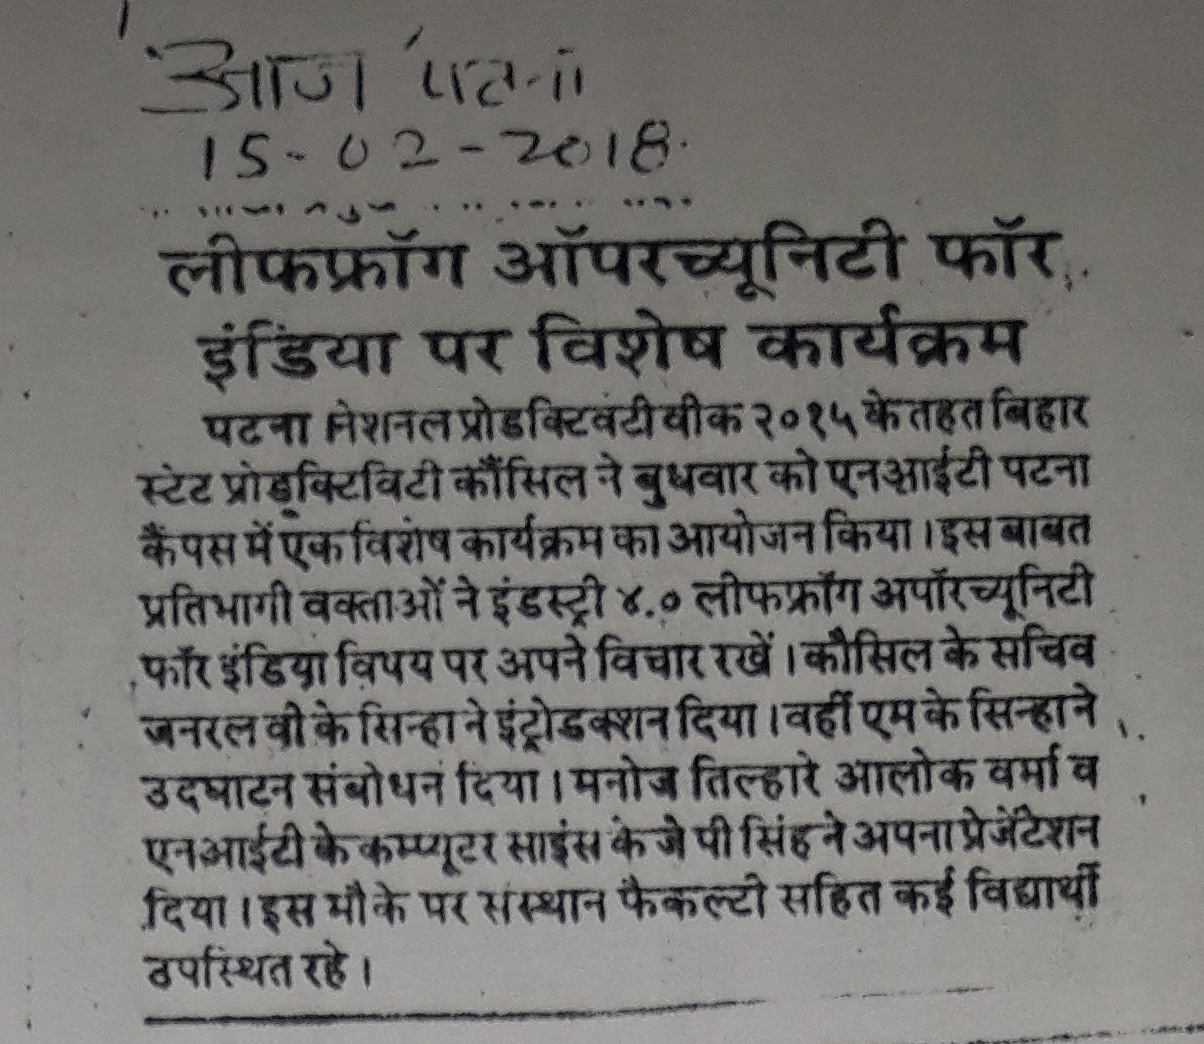 आज पटना
15-02-2018
लीफफ्रॉग ऑपरच्यूनिटी फॉर
इंडिया पर विशेष कार्यक्रम
पटना नेशनल प्रोडक्टिवंटी वीक २०१५ के तहत बिहार
स्टेट प्रोडक्टिविटी कौंसिल ने बुधवार को एनआईटी पटना
कैंपस में एक विशेष कार्यक्रम का आयोजन किया । इस बाबत
प्रतिभागी वक्ताओं ने इंडस्ट्री ४.० लीफफ्रॉग अपॉरच्यूनिटी
फॉर इंडिया विषय पर अपने विचार रखें । कौसिल के सचिव
जनरल वी के सिन्हा ने इंट्रोडक्शन दिया । वहीं एम के सिन्हा ने
उदघाटन संबोधन दिया । मनोज तिल्हारे आलोक वर्मा व
एनआईटी के कम्प्यूटर साइंस के जे पी सिंह ने अपना प्रेजेंटेशन
दिया । इस मौके पर संस्थान फैकल्टी सहित कई विद्यार्थी
उपस्थित रहे ।